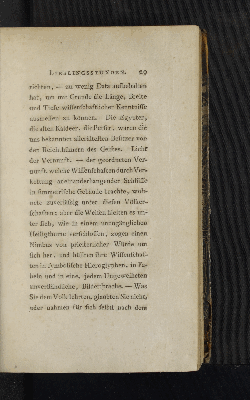 LIEBLINGSSTUNDEN. 29
richten, — zu wenig Data aufbehalten
hat, um mit Grunde die Länge, Breite
und Tiefe wissenschaftlicher Kenntnisse
ausmessen zu können. Die
die alten Kaldeer, die Perser, waren die
uns bekannten allerältesten Besitzer von
den Reichthümern des Geistes. Licht
der Vernunft, — der geordneten Ver-
nunft, welche Wissenschaften durch Ver-
kettung zusammenhangender Schlüsse
in Gebäude brachte, wohn-
te zuverlässig unter diesen Völker-
schaften: aber die Weisen hielten es un-
ter sich, wie in einem unzugänglichen
Heiligthume verschlossen, zogen einen
Nimbus von priesterlicher Würde um
sich her, und hüllten ihre Wissenschaf-
ten in symbolische Hieroglyphen, in Fa-
beln und in eine, jedem Ungeweiheten
unverständliche, Bildersprache. — Was
Sie dem Volk lehrten, glaubten Sie nicht,
oder nahmen für sich selbst nach dem